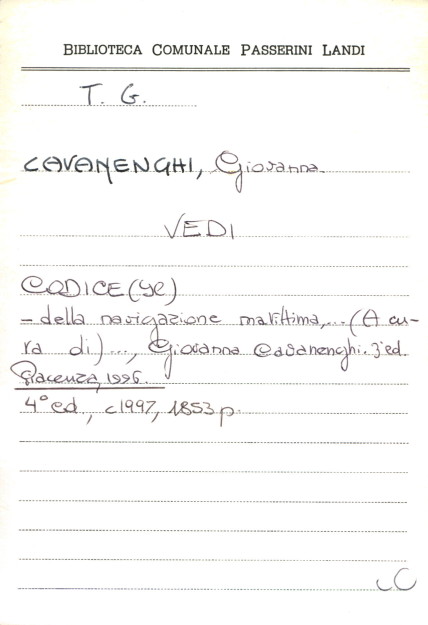 BIBLIOTECA COMUNALE PASSERINI LANDI
T. G.
CAVANENGHI, Giovanna.
VEDI
CODICE (Il)
- della navigazione marittima,... (A cu-
ra di)..., Giovanna Cavanenghi. 3ªed.
Piacenza, 1996.
4° ed., c1997, 1853 p.